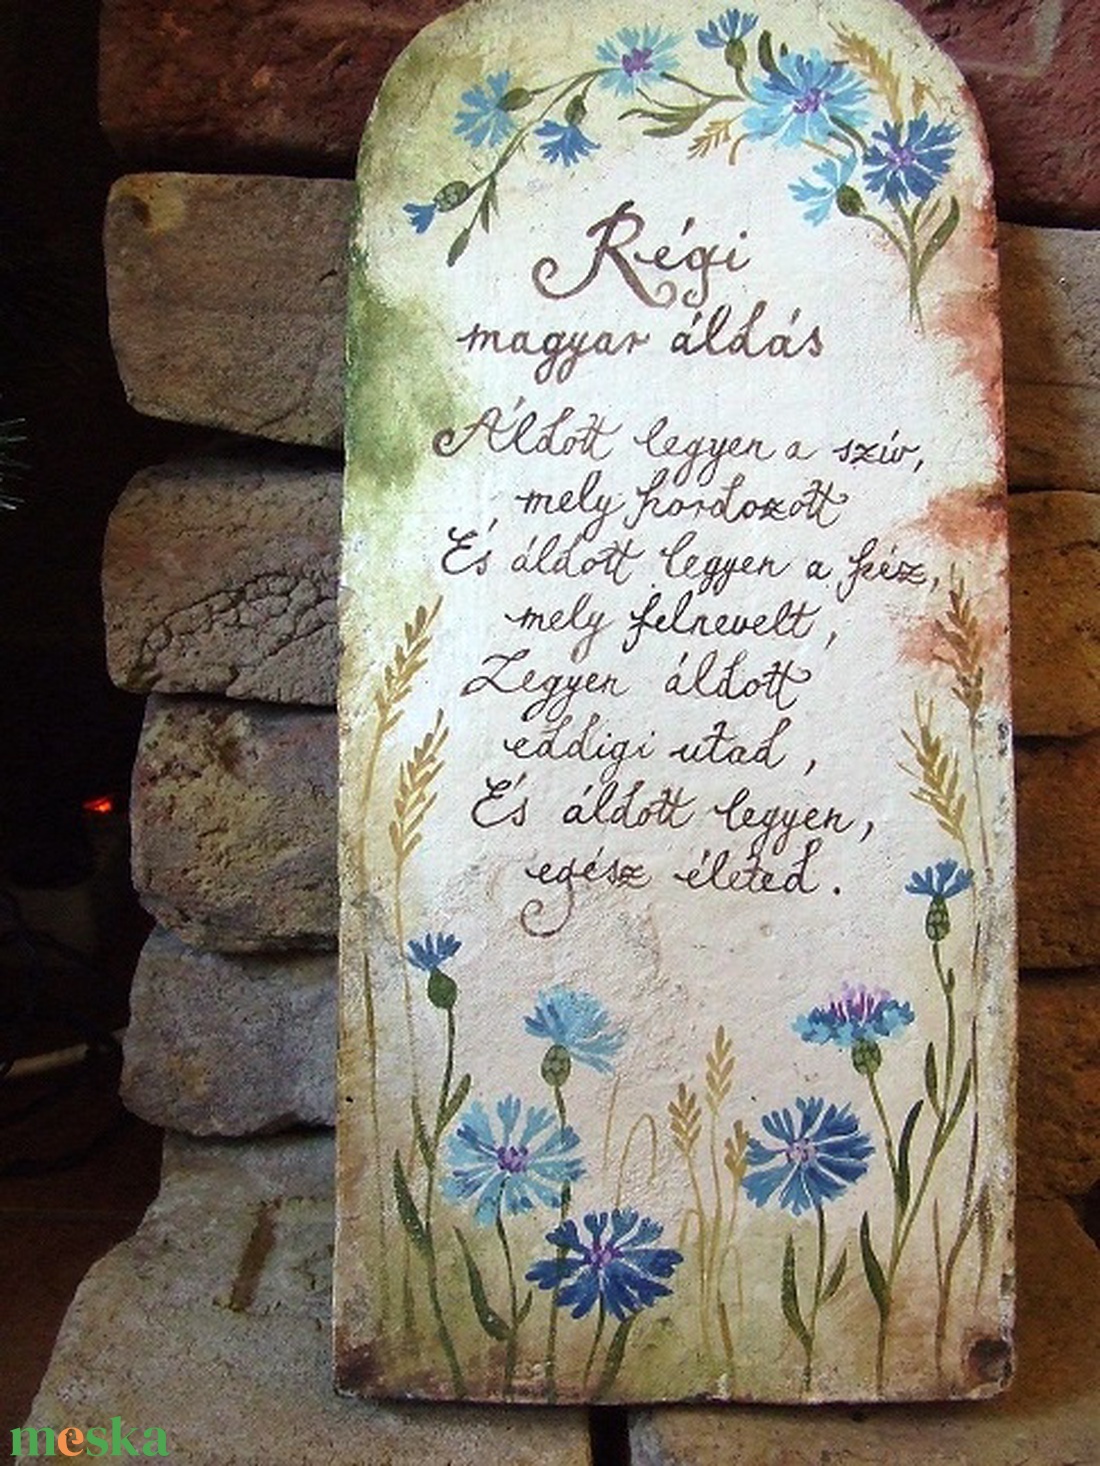 Régi
magyar áldás
Áldott legyen a szív,
mely hordozott
És áldott legyen a kéz,
mely felnevelt,
Legyen áldott
eddigi utad,
És áldott legyen,
egész életed.
meska